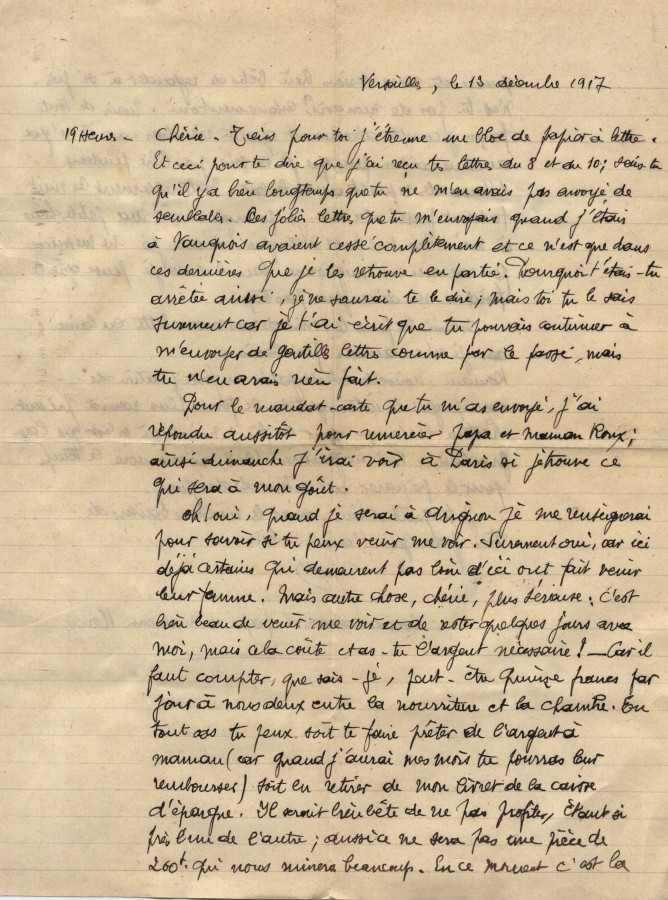 Versailles, le 13 décembre 1917
19 heures - Chérie - Tiens pour toi j'étrenne un bloc de papier à lettre.
Et ceci pour te dire que j'ai reçu tes lettres du 8 et du 10; sais-tu
qu'il y a bien longtemps que tu ne m'en avais pas envoyé de
semblables. Ces jolies lettres que tu m'envoyais quand j'étais
à Vauquois avaient cessé complètement et ce n'est que dans
ces dernières que je les retrouve en partie. Pourquoi t'étais-tu
arrêtée aussi, je ne saurai te le dire; mais toi tu le sais
surement car je t'ai écrit que tu pouvais continuer à
m'envoyer de gentilles lettres comme par le passé, mais
tu n'en avais rien fait.
Pour le mandat-carte que tu m'as envoyé, j'ai
répondu aussitôt pour remercier papa et maman Roux;
ainsi dimanche j'irai voir à Paris si je trouve ce
qui sera à mon goût.
Oh! oui, quand je serai à je me renseignerai
pour savoir si tu peux venir me voir. Surement oui, car ici
déjà certains qui demeurent pas loin d'ici ont fait venir
leur femme. Mais autre chose, chérie, plus sérieuse: c'est
bien beau de venir me voir et de rester quelques jours avec
moi, mais cela coûte et as-tu l'argent nécessaire! - Car il
faut compter, que sais-je, peut-être quinze francs par
jour à nous deux entre la nourriture et la chambre. En
tout cas tu peux soit te faire prêter de l'argent à
maman (car quand j'aurai mes mois tu pourras leur
rembourser) soit en retirer de mon livret de la caisse
d'épargne. Il serait bien bête de ne pas profiter, étant si
près l'un de l'autre; aussi ce ne sera pas une pièce de
200f. qui nous minera beaucoup. En ce moment c'est la